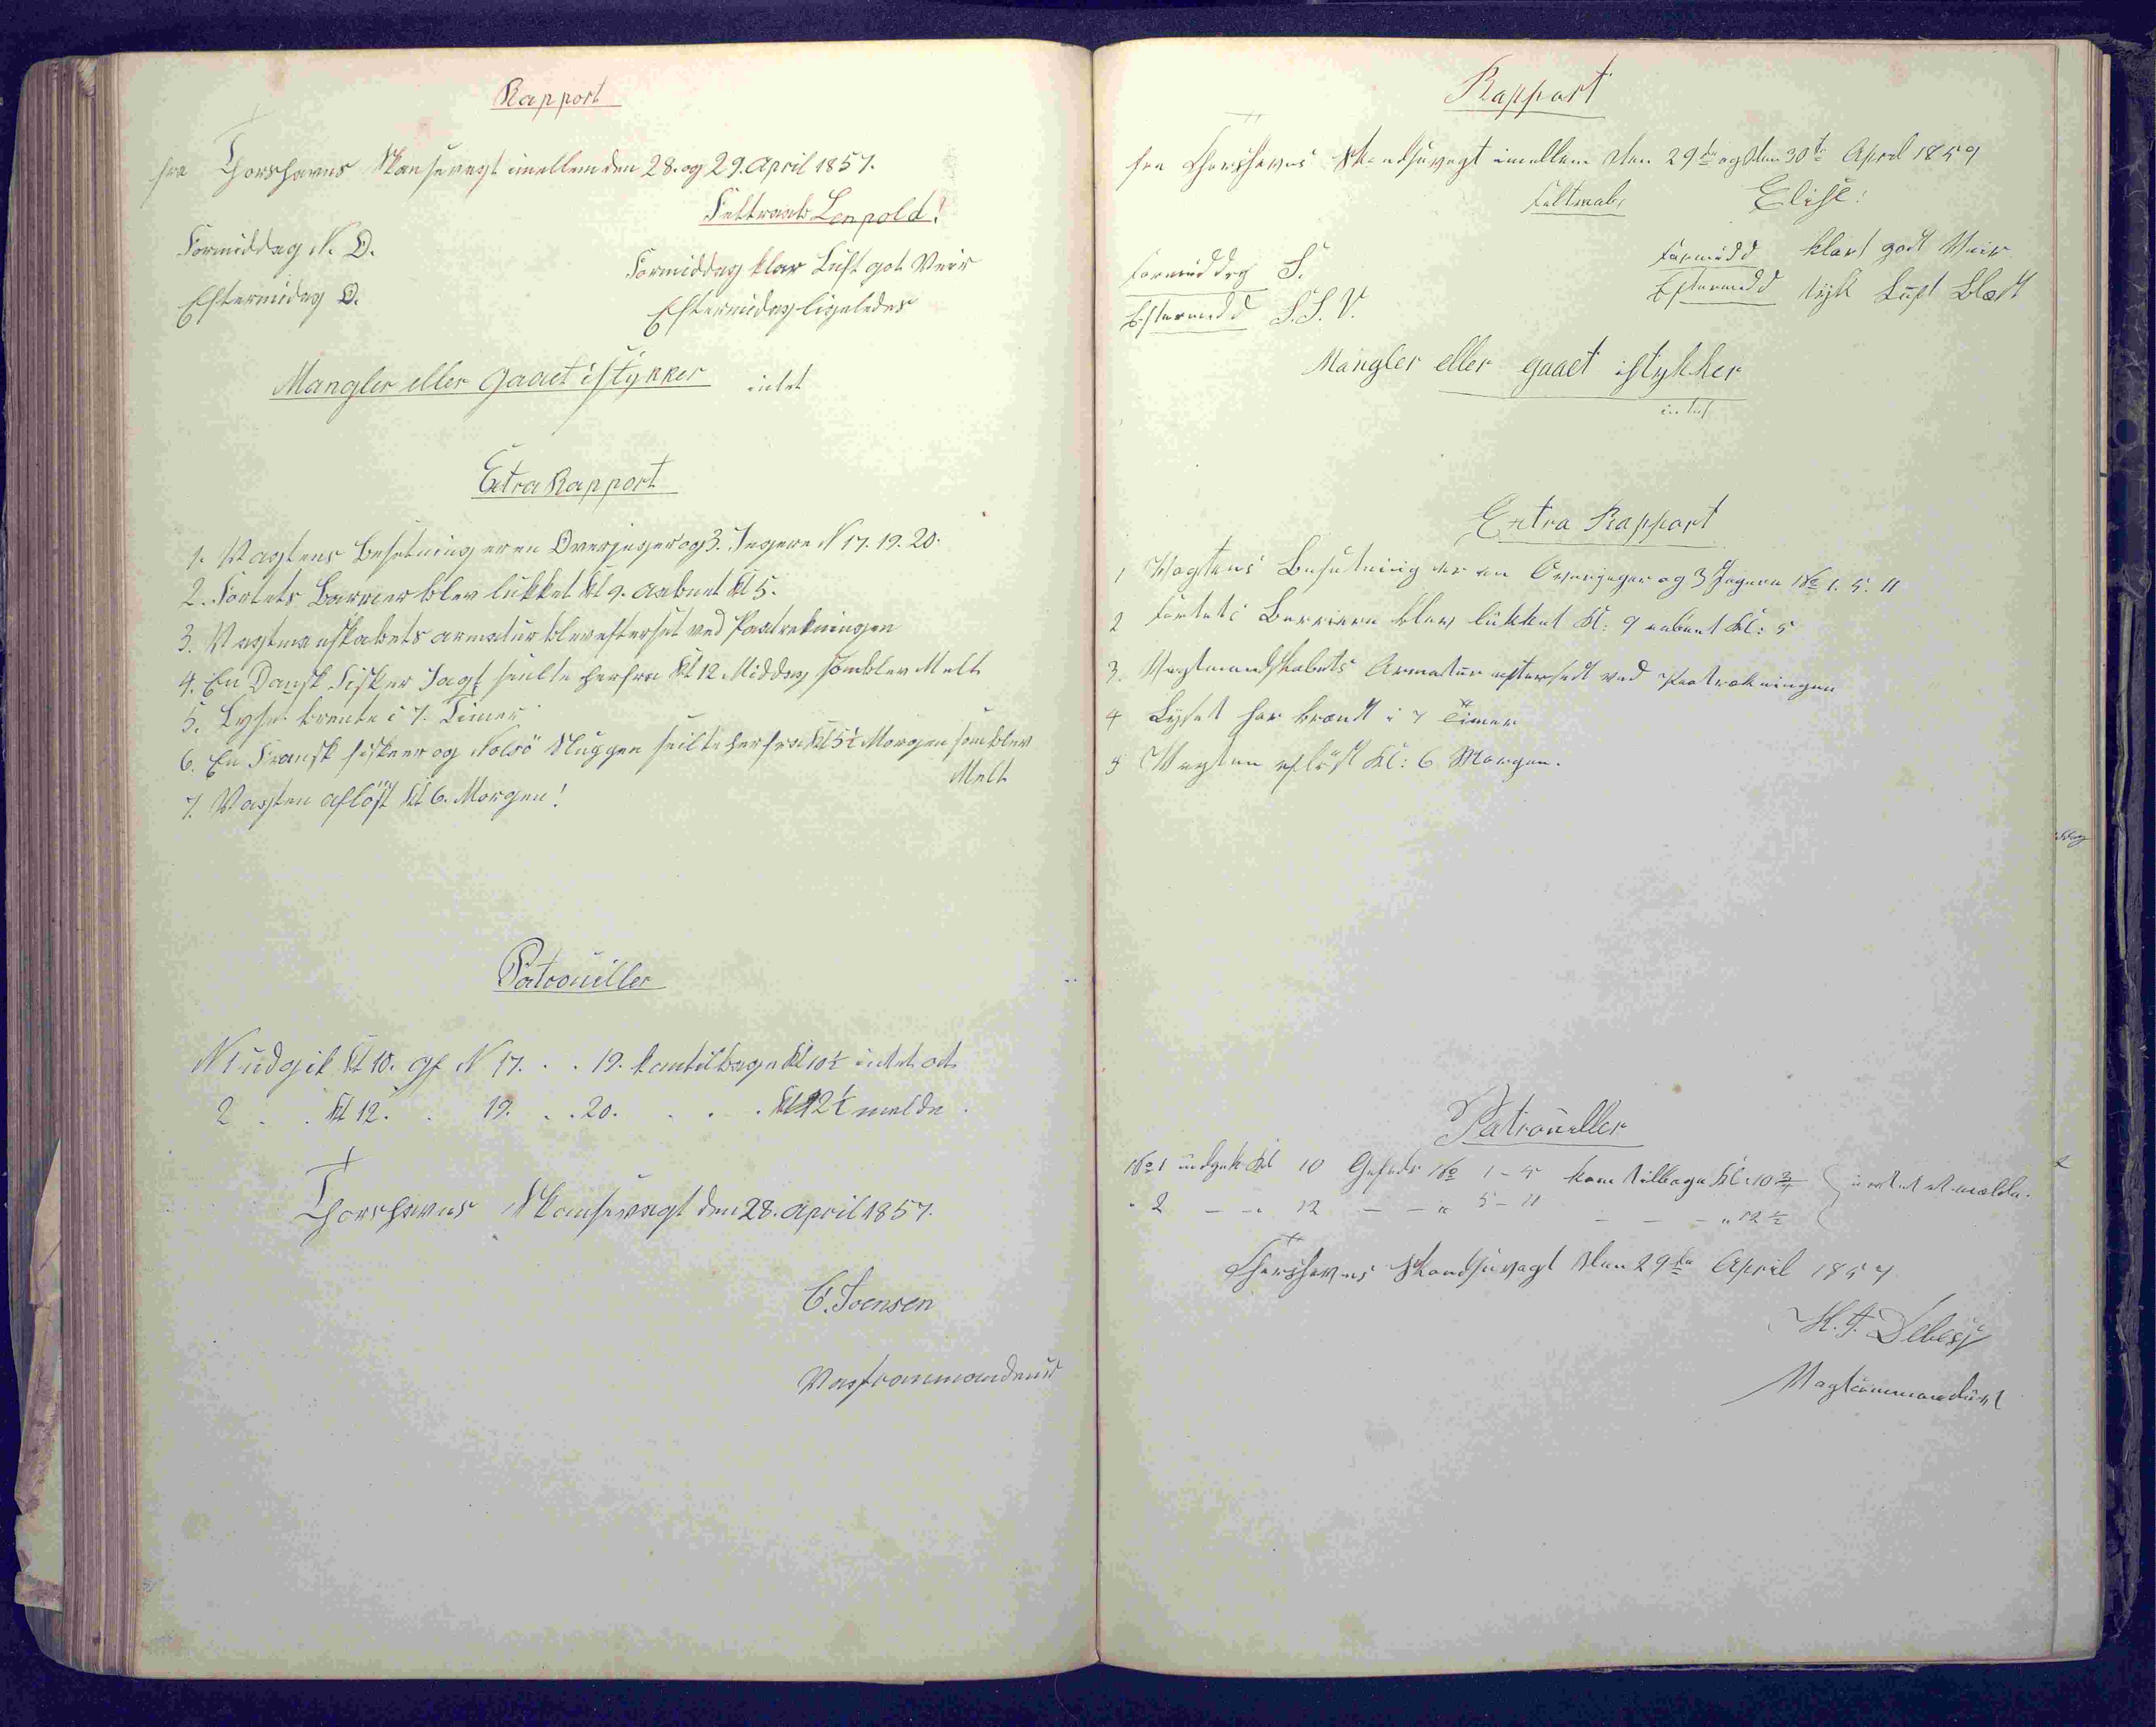 Rapport
fra Thorshavns Skansevagt imellem den 28. og 29. April 1857.
Feltraab Leopold!
Formiddag N. O.
Formiddag klar Luft got Veir
Eftermidag O.
Eftermidag ligeledes
Mangler eller gaaet istykker intet
Extra Rapport
1. Vagtens Besetning er en Overjeger og 3. Jegere N 17. 19. 20.
2. Fortets Barrier blev lukket Kl 9. aabnet Kl 5.
3. Vagtmanskabets armatur blev efterset ved Paatrekningen
4. En Dansk Fisker Jagt seilte herfra Kl 12 Middag som blev Melt
5. Lyset brente i 7. Timer
6. En Fransk fisker og Nolsö Sluppen seilte herfra Kl 5½ Morgen som blev
Melt
7. Vagten aflöst Kl 6. Morgen!
Patrouiller
N 1 udgik Kl 10. gf N 17. . . 19. kom tilbage Kl 10½ intet at
2 . . Kl 12. . 19. . . 20. . . . Kl 12½ melde .
Thorshavns Skansevagt den 28. April 1857.
C. Joensen
Vagtcommandeur
Rapport
fra Thorshavns Skandsevagt imellem den 29de og den 30te April 1857
Feltraab, Elise:
Formiddag S.
Formidd klart godt Veir
Eftermidd S.S.V.
Eftermidd tyk Luft Blæst
Mangler eller gaaet istykker
intet
Extra Rapport
1 Vagtens Besetning er en Overjeger og 3 Jegere No 1. 5. 11
2 Fortets Barriere blev lukket Kl: 9 aabnet Kl: 5
3. Vagtmandskabets Armatur efterseet ved Paatrækningen
4 Lyset har brændt i 7 Timer
5 Vagten aflöst Kl: 6 Morgen.
Patrouiller
No 1 udgik Kl 10 Gefreder No 1 - 5 kom tilbage Kl: 10¾ intet at melde.
" 2 — " 12 — — " 5 - 11 — — — " 12½
Thorshavns Skandsevagt den 29de April 1857
H. J. Debess
Vagtcommandeur